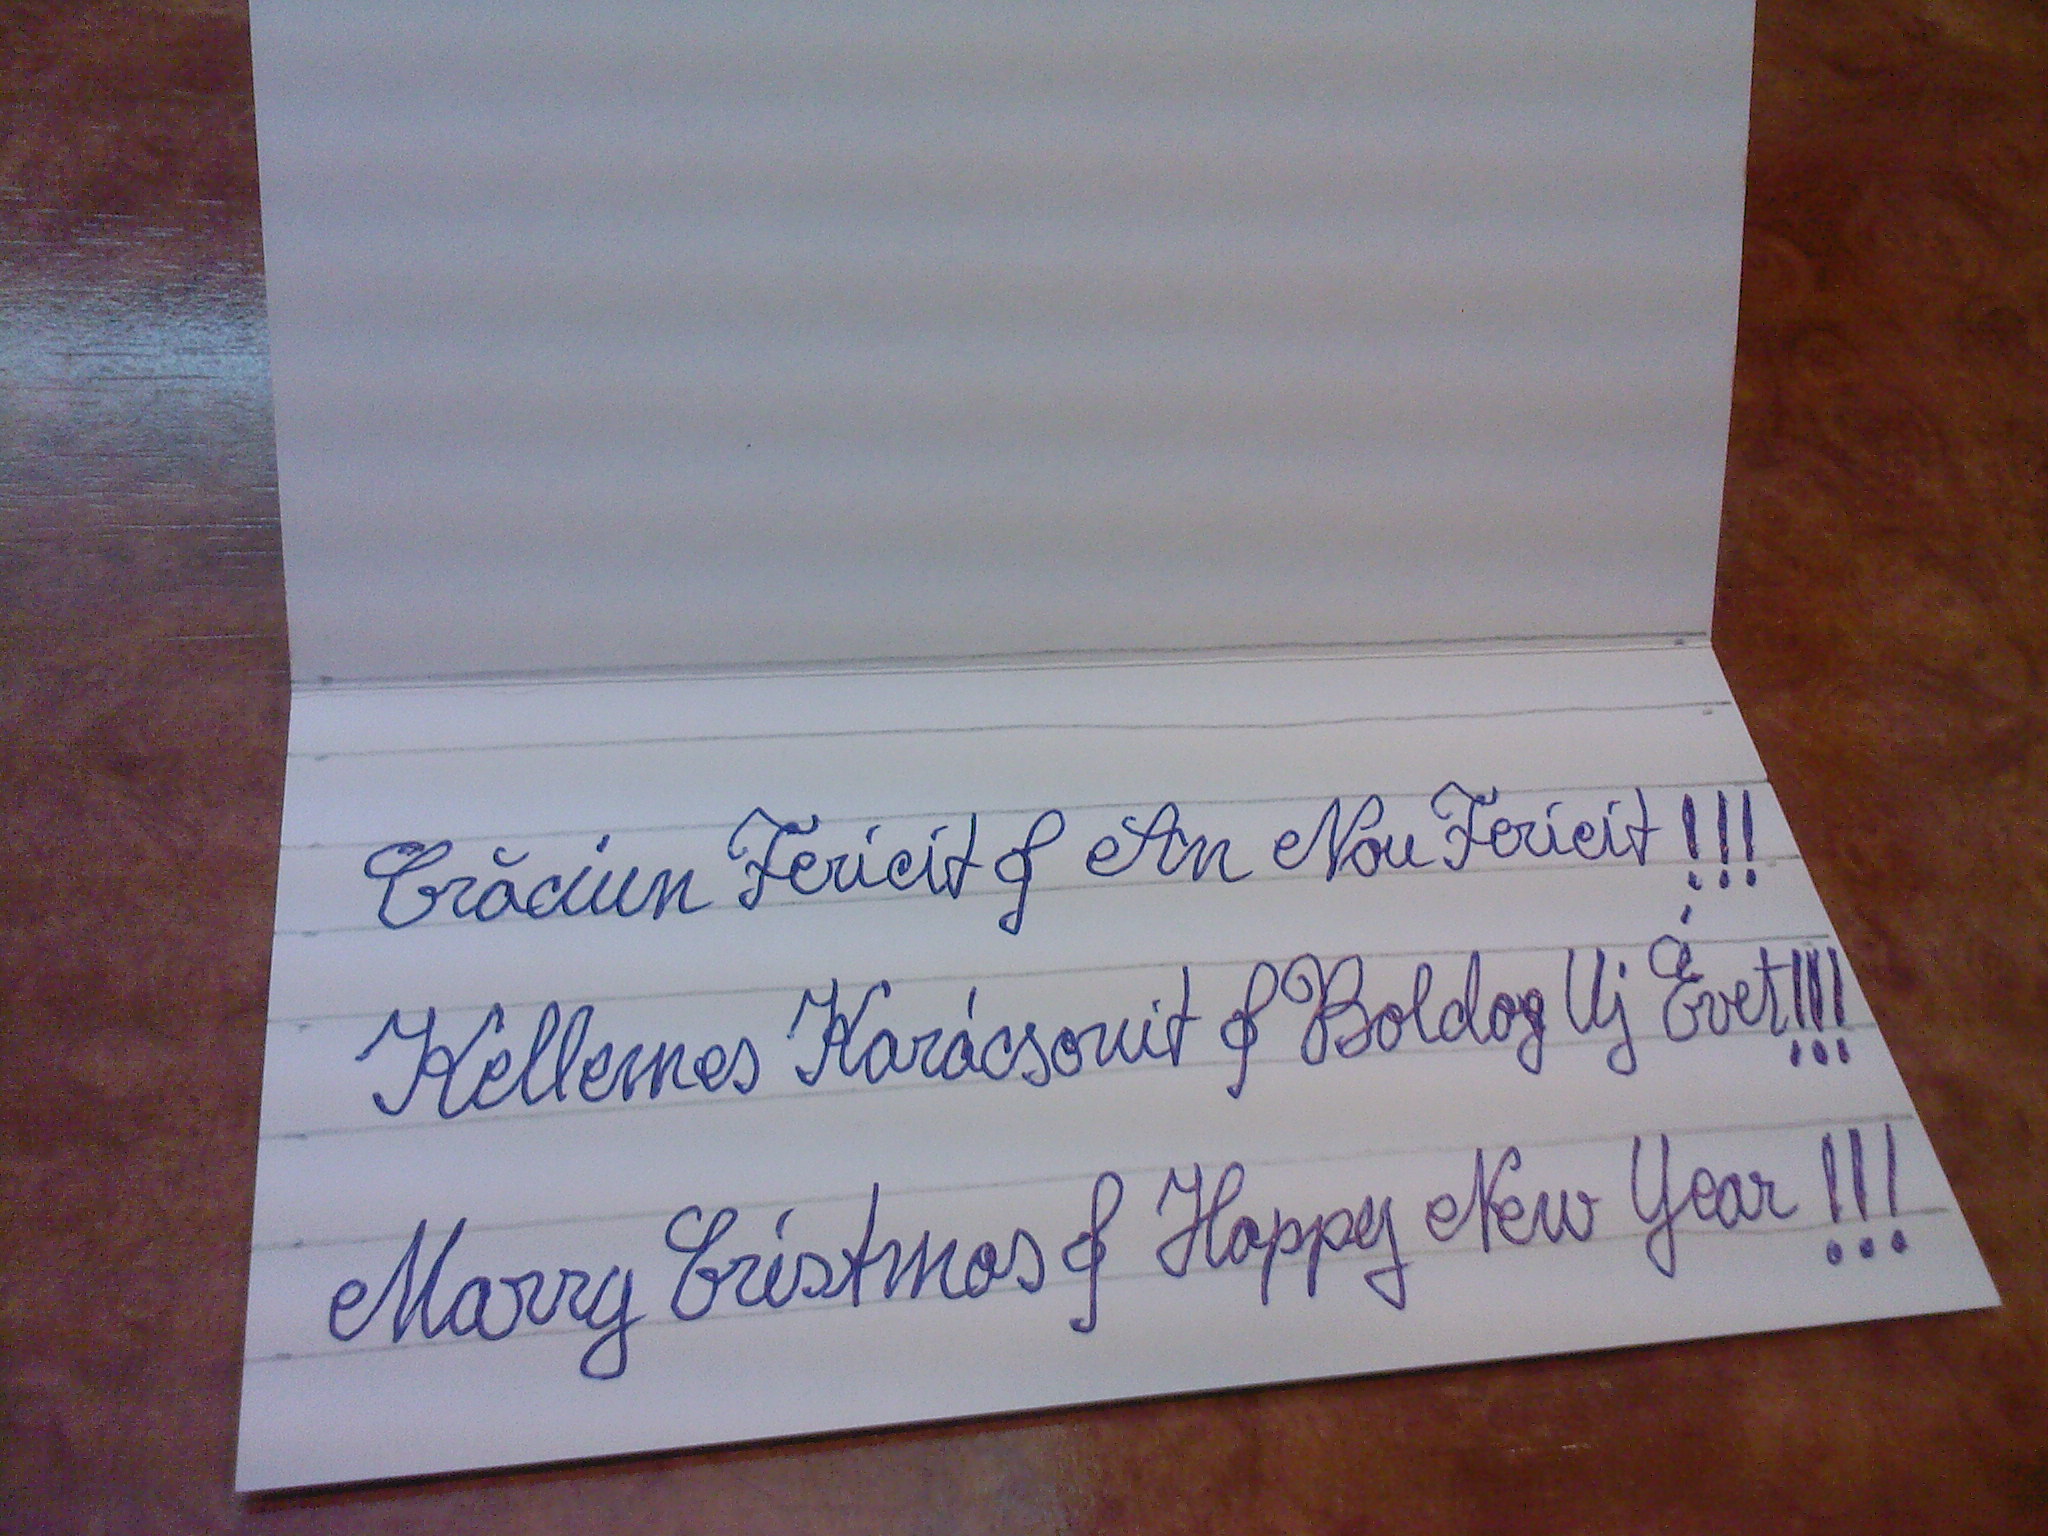 Crăciun Fericit & An Nou Fericit !!!
Kellemes Karácsonit & Boldog Uj Évet!!!
Marry Cristmas & Happy New Year !!!